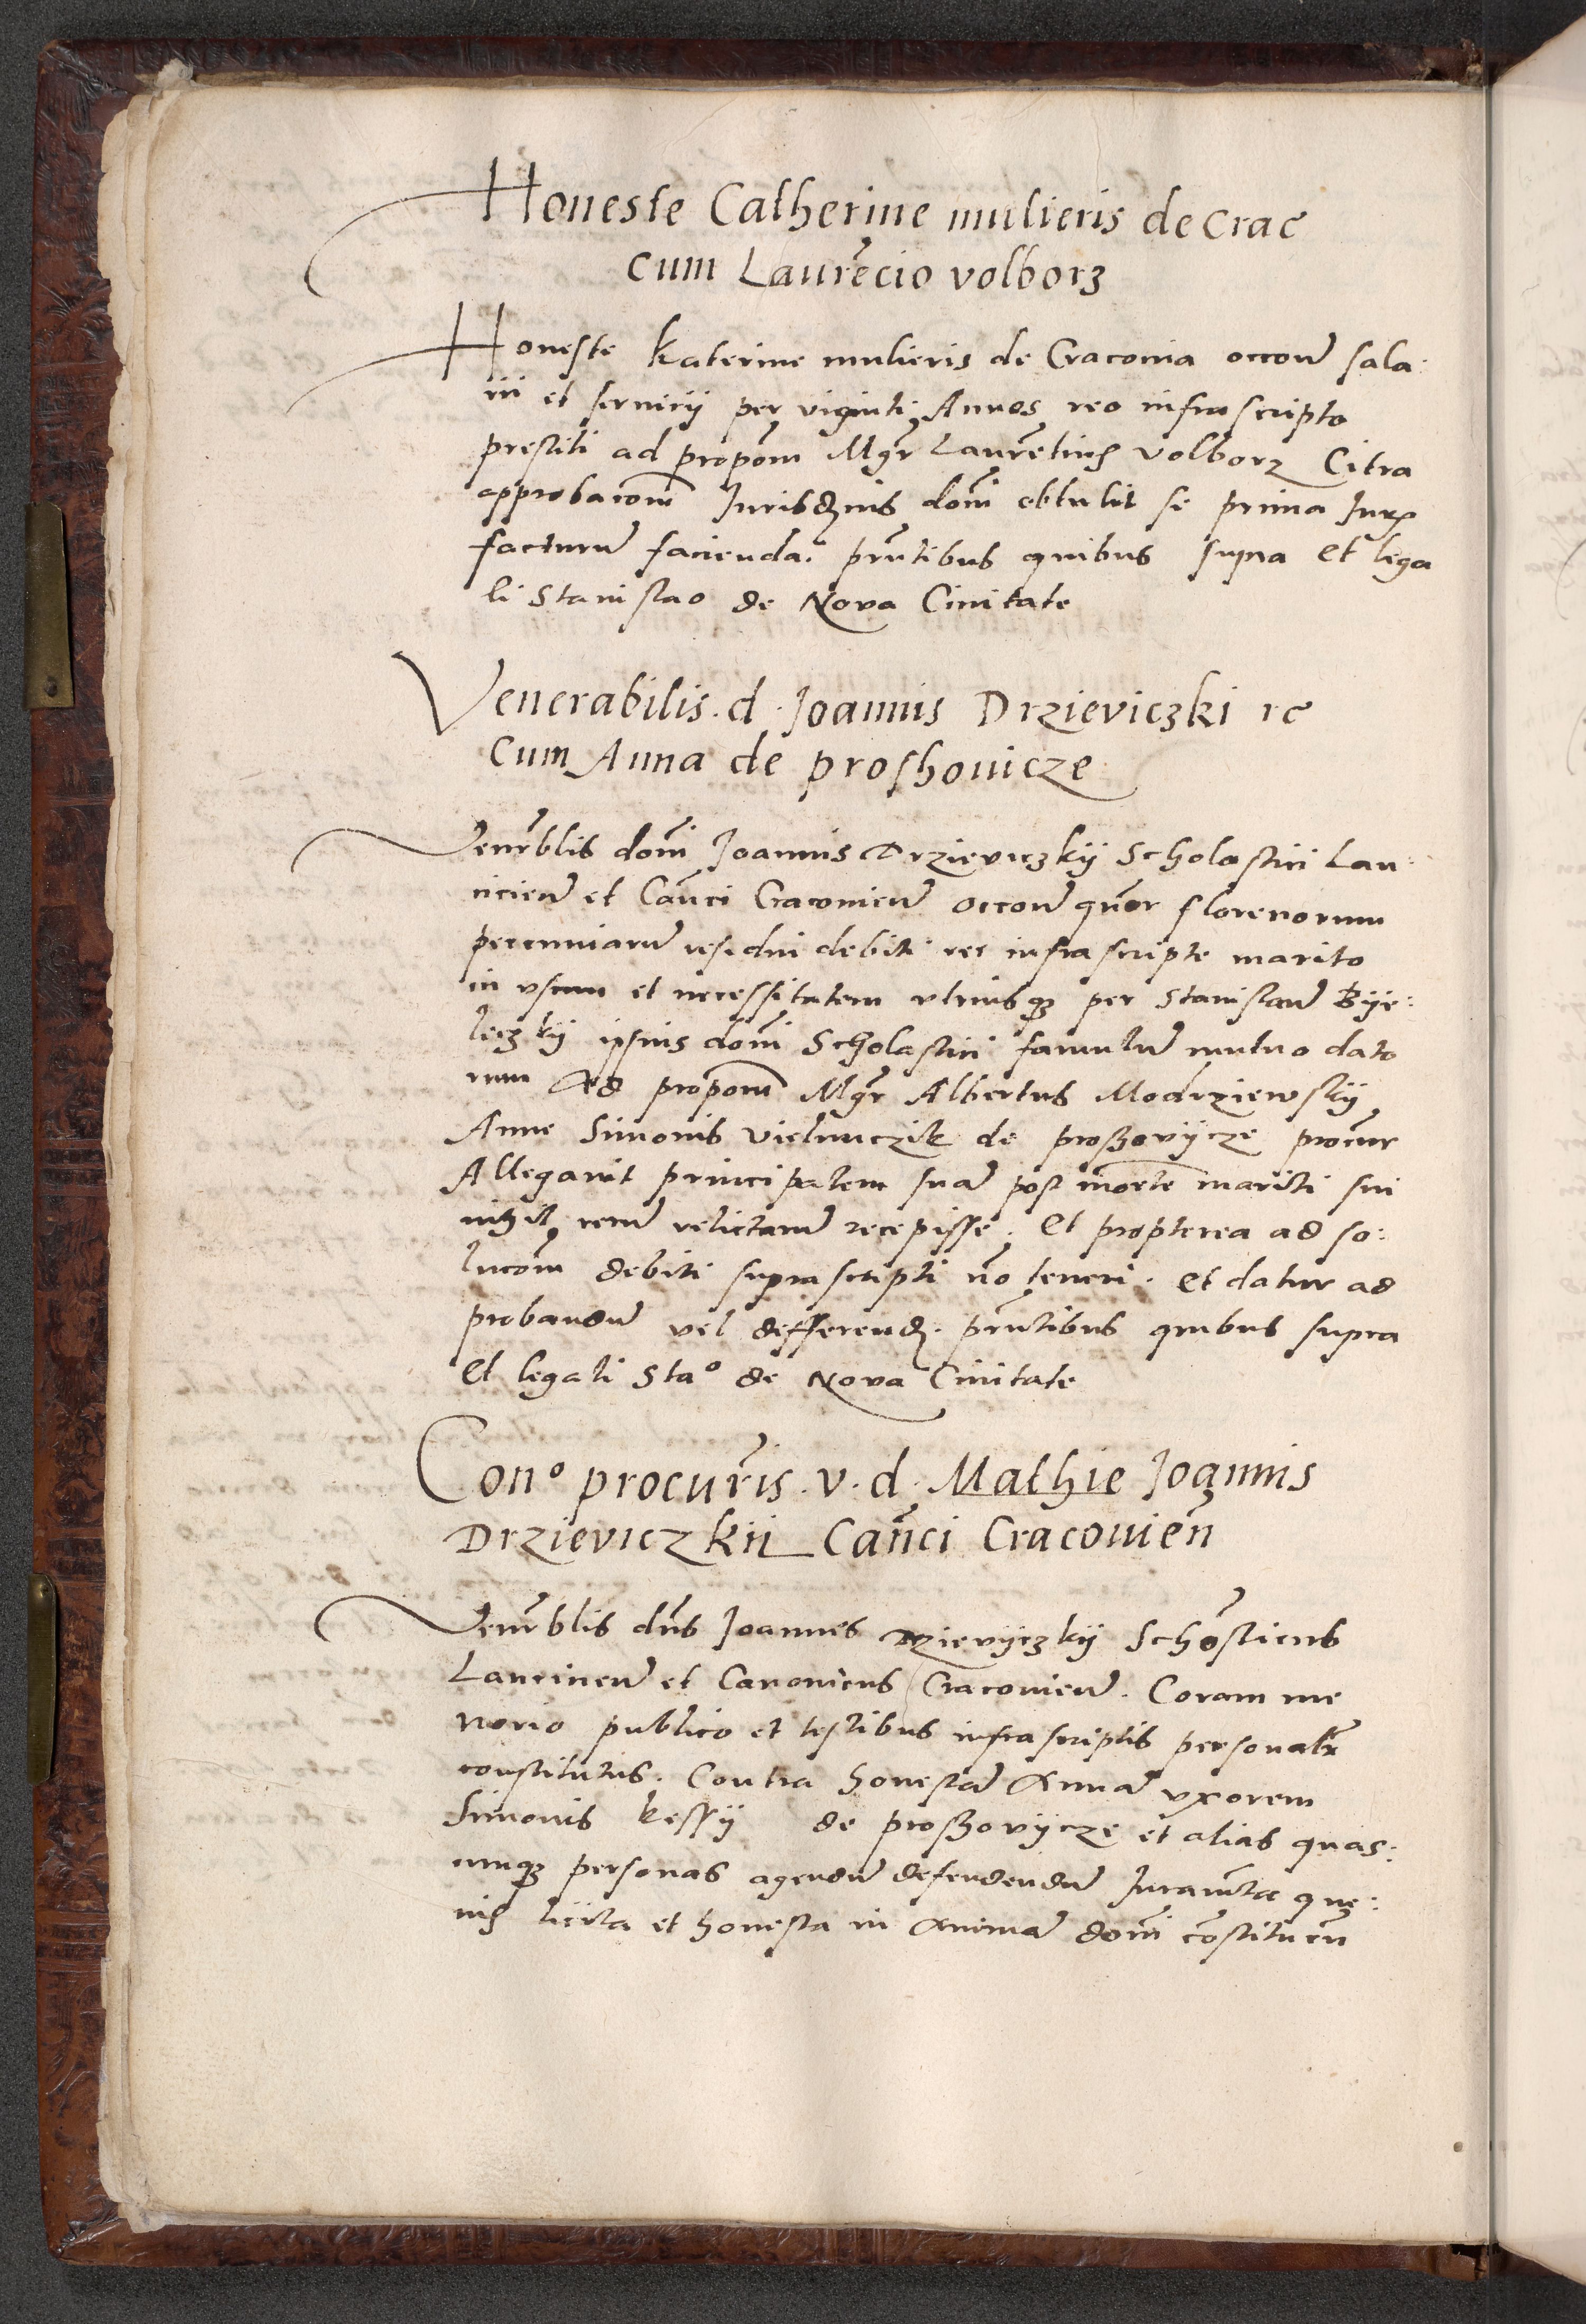 Honeste Catherine mulieris de Crac
cum Laurēcio volborz
Honeste katerine mulieris de Craconia occoē sala:
rii et servicij per viginti Annos reo infrascripto
prestiti ad propōm Mgr̄ Laurētius Volborz Citra
approbacōm Jurisdnis domī obtulit se prima Jurꝝ
facturū facienda. prn̄tibus quibus supra et lega
li Stanislao de Nova Civitate
Venerabilis. d. Joannis Drzieviczki rc
Cum Anna de proshovicze
Venr̄blis domī Joannis Drzieviczkij Scholastici Lan:
ciciēn et Cān̄ci Cracoviēn occoē quor florenorum
pecuniarū residui debiti ree infrascripte marito
in vsum et necessitatem vtriusqꝫ per Stanislaū Bije:
leczkij ipsius domī Scholastici famulū mutuo dato
rum Ad propōm Mgr̄ Albertus Modrziewskij
Anne Simonis vielunczik de proszovijcze procur
Allegavit principalem suā post mortē mariti sui
nihil rerū relictarū recepisse. Et propterea ad so:
lucōm debiti suprascripti nō teneri. et datur ad
probandū vel defferend. prn̄tibus quibus supra
Et legali Staº de Nova Civitate
Conº procurīs. v. d. Mathie Joannis
Drzieviczkii Cān̄ci Cracovien̄
Venr̄blis dn̄s Joannes Drzievijczkij Schōsticus
Lancicieñ et Canonicus Cracovieñ. Coram me
Norio publico et testibus infrascriptis personalr̄
constitutus. Contra honestā Annā vxorem
Simonis kessij de proszovijcze et alias quas:
cunqꝫ personas agendū defendendū Juramn̄ta que:
vis licita et honesta in Animā domī cōstituen̄